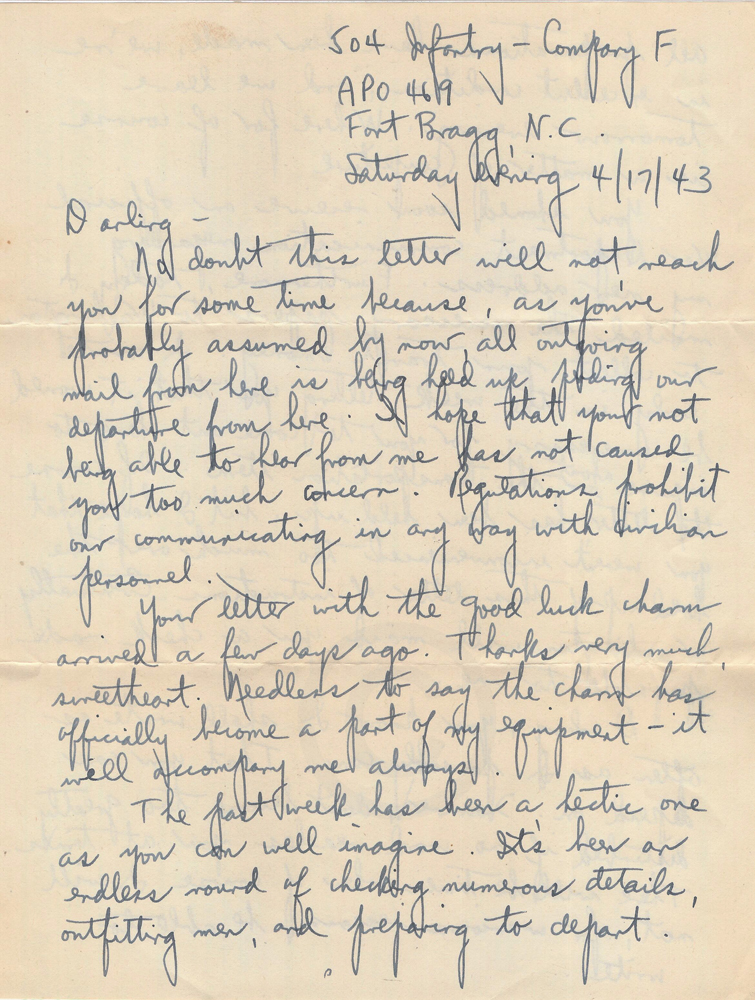 504 Infantry - Company F
APO 469
Fort Bragg, N.C.
Saturday evening 4/17/43
Darling -
No doubt this letter will not reach
you for some time because, as you've
probably assumed by now, all outgoing
mail from here is being held up, pending our
departure from here. I hope that your not
being able to hear from me has not caused
you too much concern. Regulations prohibit
our communicating in any way with civilian
personnel.
Your letter with the good luck charm
arrived a few days ago. Thanks very much,
sweetheart. Needless to say the charm has
officially become a part of my equipment - it
will accompany me always.
The past week has been a hectic one
as you can well imagine. It's been an
endless round of checking numerous details,
outfitting men, and preparing to depart.